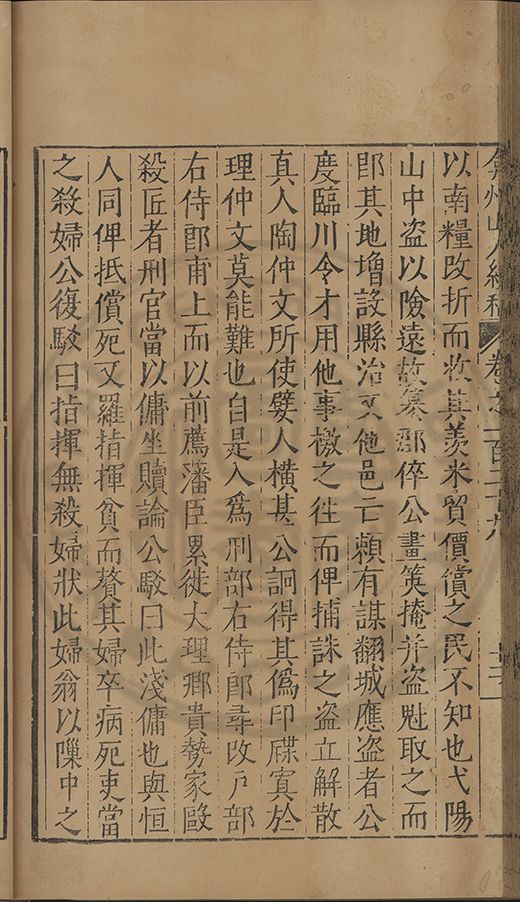 弇州山人續稿 卷之一百二十九
以南糧改折而收其羨米貿價償之民不知也弋陽
山中盜以險遠故篡郡倅公畫筴掩并盜魁取之而
即其地增設縣治又他邑亡賴有謀翻城應盜者公
度臨川令才用他事檄之往而俾捕誅之盜立解散
真人陶仲文所使嬖人橫甚公詗得其僞印牒寘於
理仲文莫能難也自是入爲刑部右侍郎尋改戶部
右侍郎甫上而以前薦藩臣累徙大理卿貴勢家毆
殺匠者刑官當以傭坐贖論公駁曰此淺傭也與恒
人同俾抵償死又羅指揮貧而贅其婦卒病死吏當
之殺婦公復駁曰指揮無殺婦狀此婦翁以嘿中之